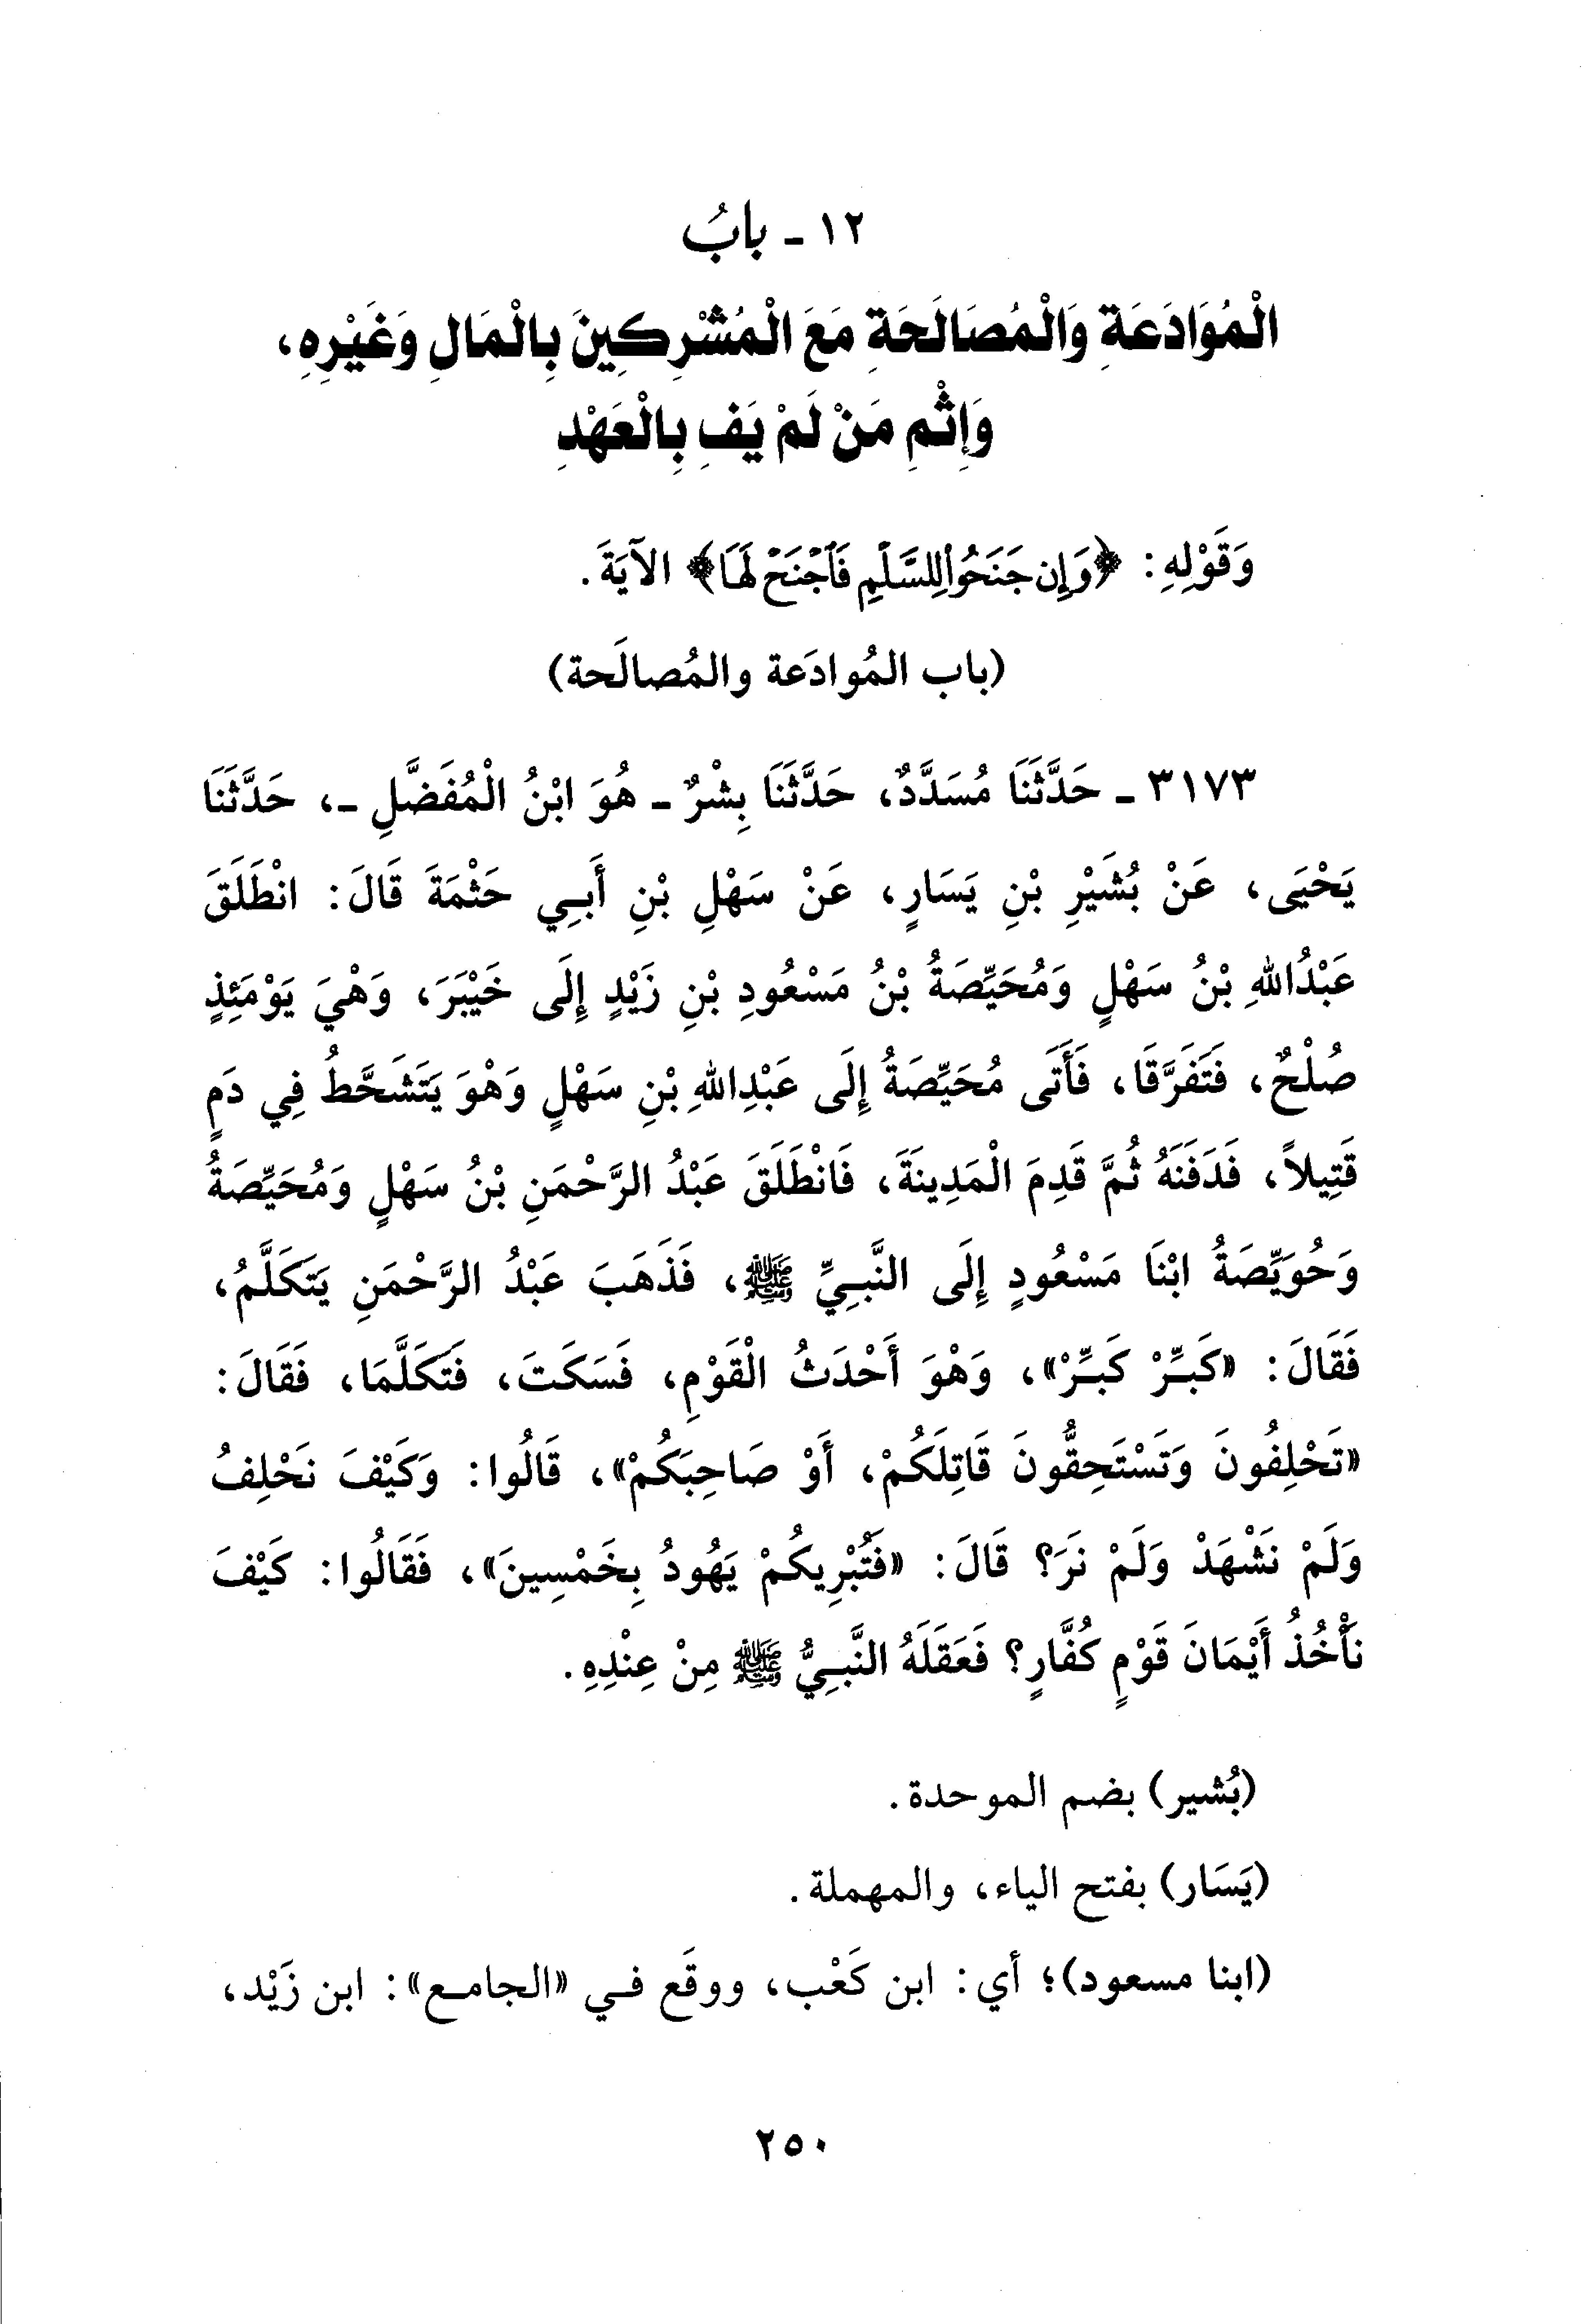 ١٢ - بابُ
الْمُوَادَعَةِ وَالْمُصَالَحَةِ مَعَ الْمُشْرِكِينَ بِالْمَالِ وَغَيْرِهِ،
وَإِثْمِ مَنْ لَمْ يَفِ بِالْعَهْدِ
وَقَوْلِهِ: ﴿وَإِن جَنَحُوا۟ لِلسَّلْمِ فَٱجْنَحْ لَهَا﴾ الآيَةَ.
(باب المُوادَعة والمُصالَحة)
٣١٧٣ - حَدَّثَنَا مُسَدَّدٌ، حَدَّثَنَا بِشْرٌ - هُوَ ابْنُ الْمُفَضَّلِ -، حَدَّثَنَا
يَحْيَى، عَنْ بُشَيْرِ بْنِ يَسَارٍ، عَنْ سَهْلِ بْنِ أَبِي حَثْمَةَ قَالَ: انْطَلَقَ
عَبْدُاللهِ بْنُ سَهْلٍ وَمُحَيِّصَةُ بْنُ مَسْعُودِ بْنِ زَيْدٍ إِلَى خَيْبَرَ، وَهْيَ يَوْمَئِذٍ
صُلْحٌ، فَتَفَرَّقَا، فَأَتَى مُحَيِّصَةُ إِلَى عَبْدِاللهِ بْنِ سَهْلٍ وَهْوَ يَتَشَحَّطُ فِي دَمٍ
قَتِيلاً، فَدَفَنَهُ ثُمَّ قَدِمَ الْمَدِينَةَ، فَانْطَلَقَ عَبْدُ الرَّحْمَنِ بْنُ سَهْلٍ وَمُحَيِّصَةُ
وَحُوَيِّصَةُ ابْنَا مَسْعُودٍ إِلَى النَّبِيِّ ﷺ، فَذَهَبَ عَبْدُ الرَّحْمَنِ يَتَكَلَّمُ،
فَقَالَ: «كَبِّرْ كَبِّرْ»، وَهْوَ أَحْدَثُ الْقَوْمِ، فَسَكَتَ، فَتَكَلَّمَا، فَقَالَ:
«تَحْلِفُونَ وَتَسْتَحِقُّونَ قَاتِلَكُمْ، أَوْ صَاحِبَكُمْ»، قَالُوا: وَكَيْفَ نَحْلِفُ
وَلَمْ نَشْهَدْ وَلَمْ نَرَ؟ قَالَ: «فَتُبْرِيكُمْ يَهُودُ بِخَمْسِينَ»، فَقَالُوا: كَيْفَ
نَأْخُذُ أَيْمَانَ قَوْمٍ كُفَّارٍ؟ فَعَقَلَهُ النَّبِيُّ ﷺ مِنْ عِنْدِهِ.
(بُشير) بضم الموحدة.
(يَسَار) بفتح الياء، والمهملة.
(ابنا مسعود)؛ أي: ابن كَعْب، ووقَع في «الجامع»: ابن زَيْد،
٢٥٠